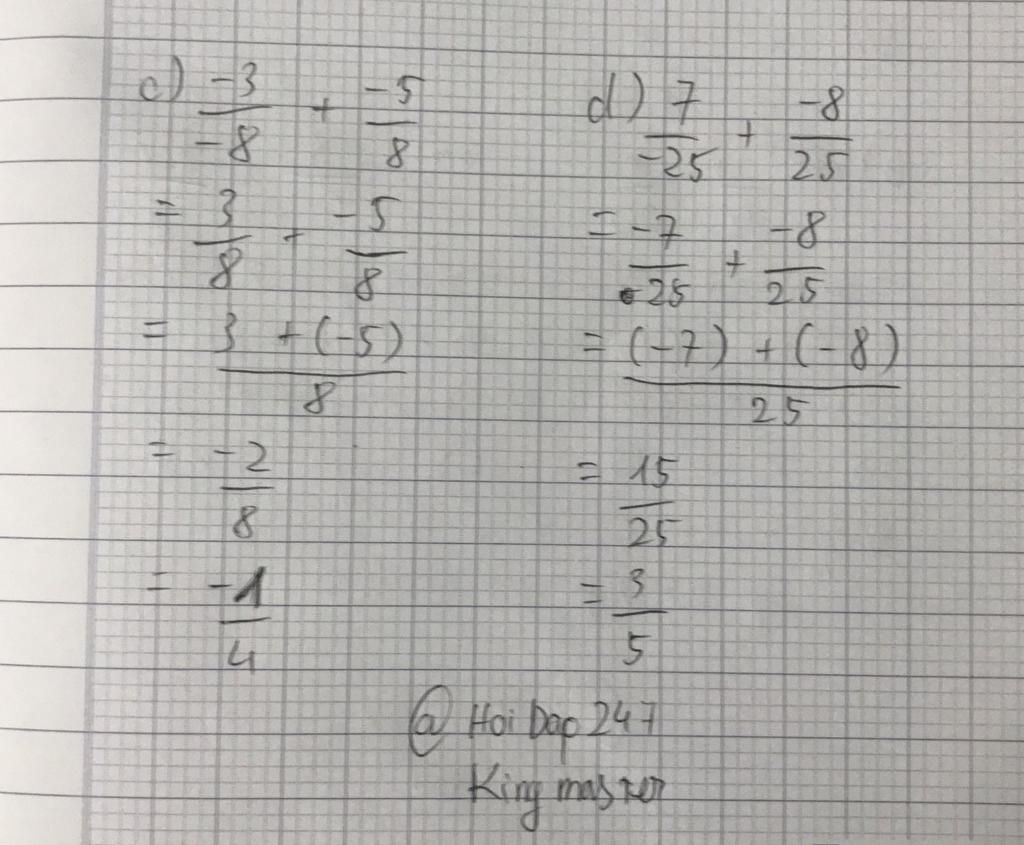 c) -3/-8 + -5/8
= 3/8 + -5/8
= 3 + (-5)/8
= -2/8
= -1/4
d) 7/-25 + -8/25
= -7/25 + -8/25
= (-7) + (-8)/25
= 15/25
= 3/5
@ Hoi Dap 247
King master